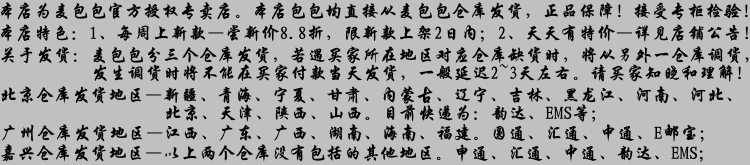 本店为麦包包官方授权专卖店。本店包包均直接从麦包包仓库发货，正品保障！接受专柜检验！
本店特色：1、每周上新款—尝新价8.8折，限新款上架2日内；2、天天有特价—详见店铺公告！
关于发货：麦包包分三个仓库发货，若遇买家所在地区对应仓库缺货时，将从另外一仓库调货，
发生调货时将不能在买家付款当天发货，一般延迟2~3天左右。请买家知晓和理解！
北京仓库发货地区—新疆、青海、宁夏、甘肃、内蒙古、辽宁、吉林、黑龙江、河南、河北、
北京、天津、陕西、山西。目前快递为：韵达、EMS等；
广州仓库发货地区—江西、广东、广西、湖南、海南、福建。圆通、汇通、中通、E邮宝；
嘉兴仓库发货地区—以上两个仓库没有包括的其他地区。申通、汇通、中通、韵达、EMS;